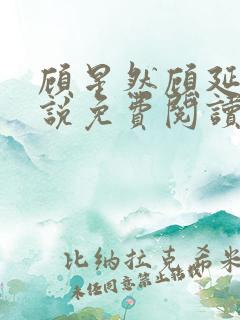 顾星然顾延
說免費閱讀
比纳拉克希米
未经同意禁止转载